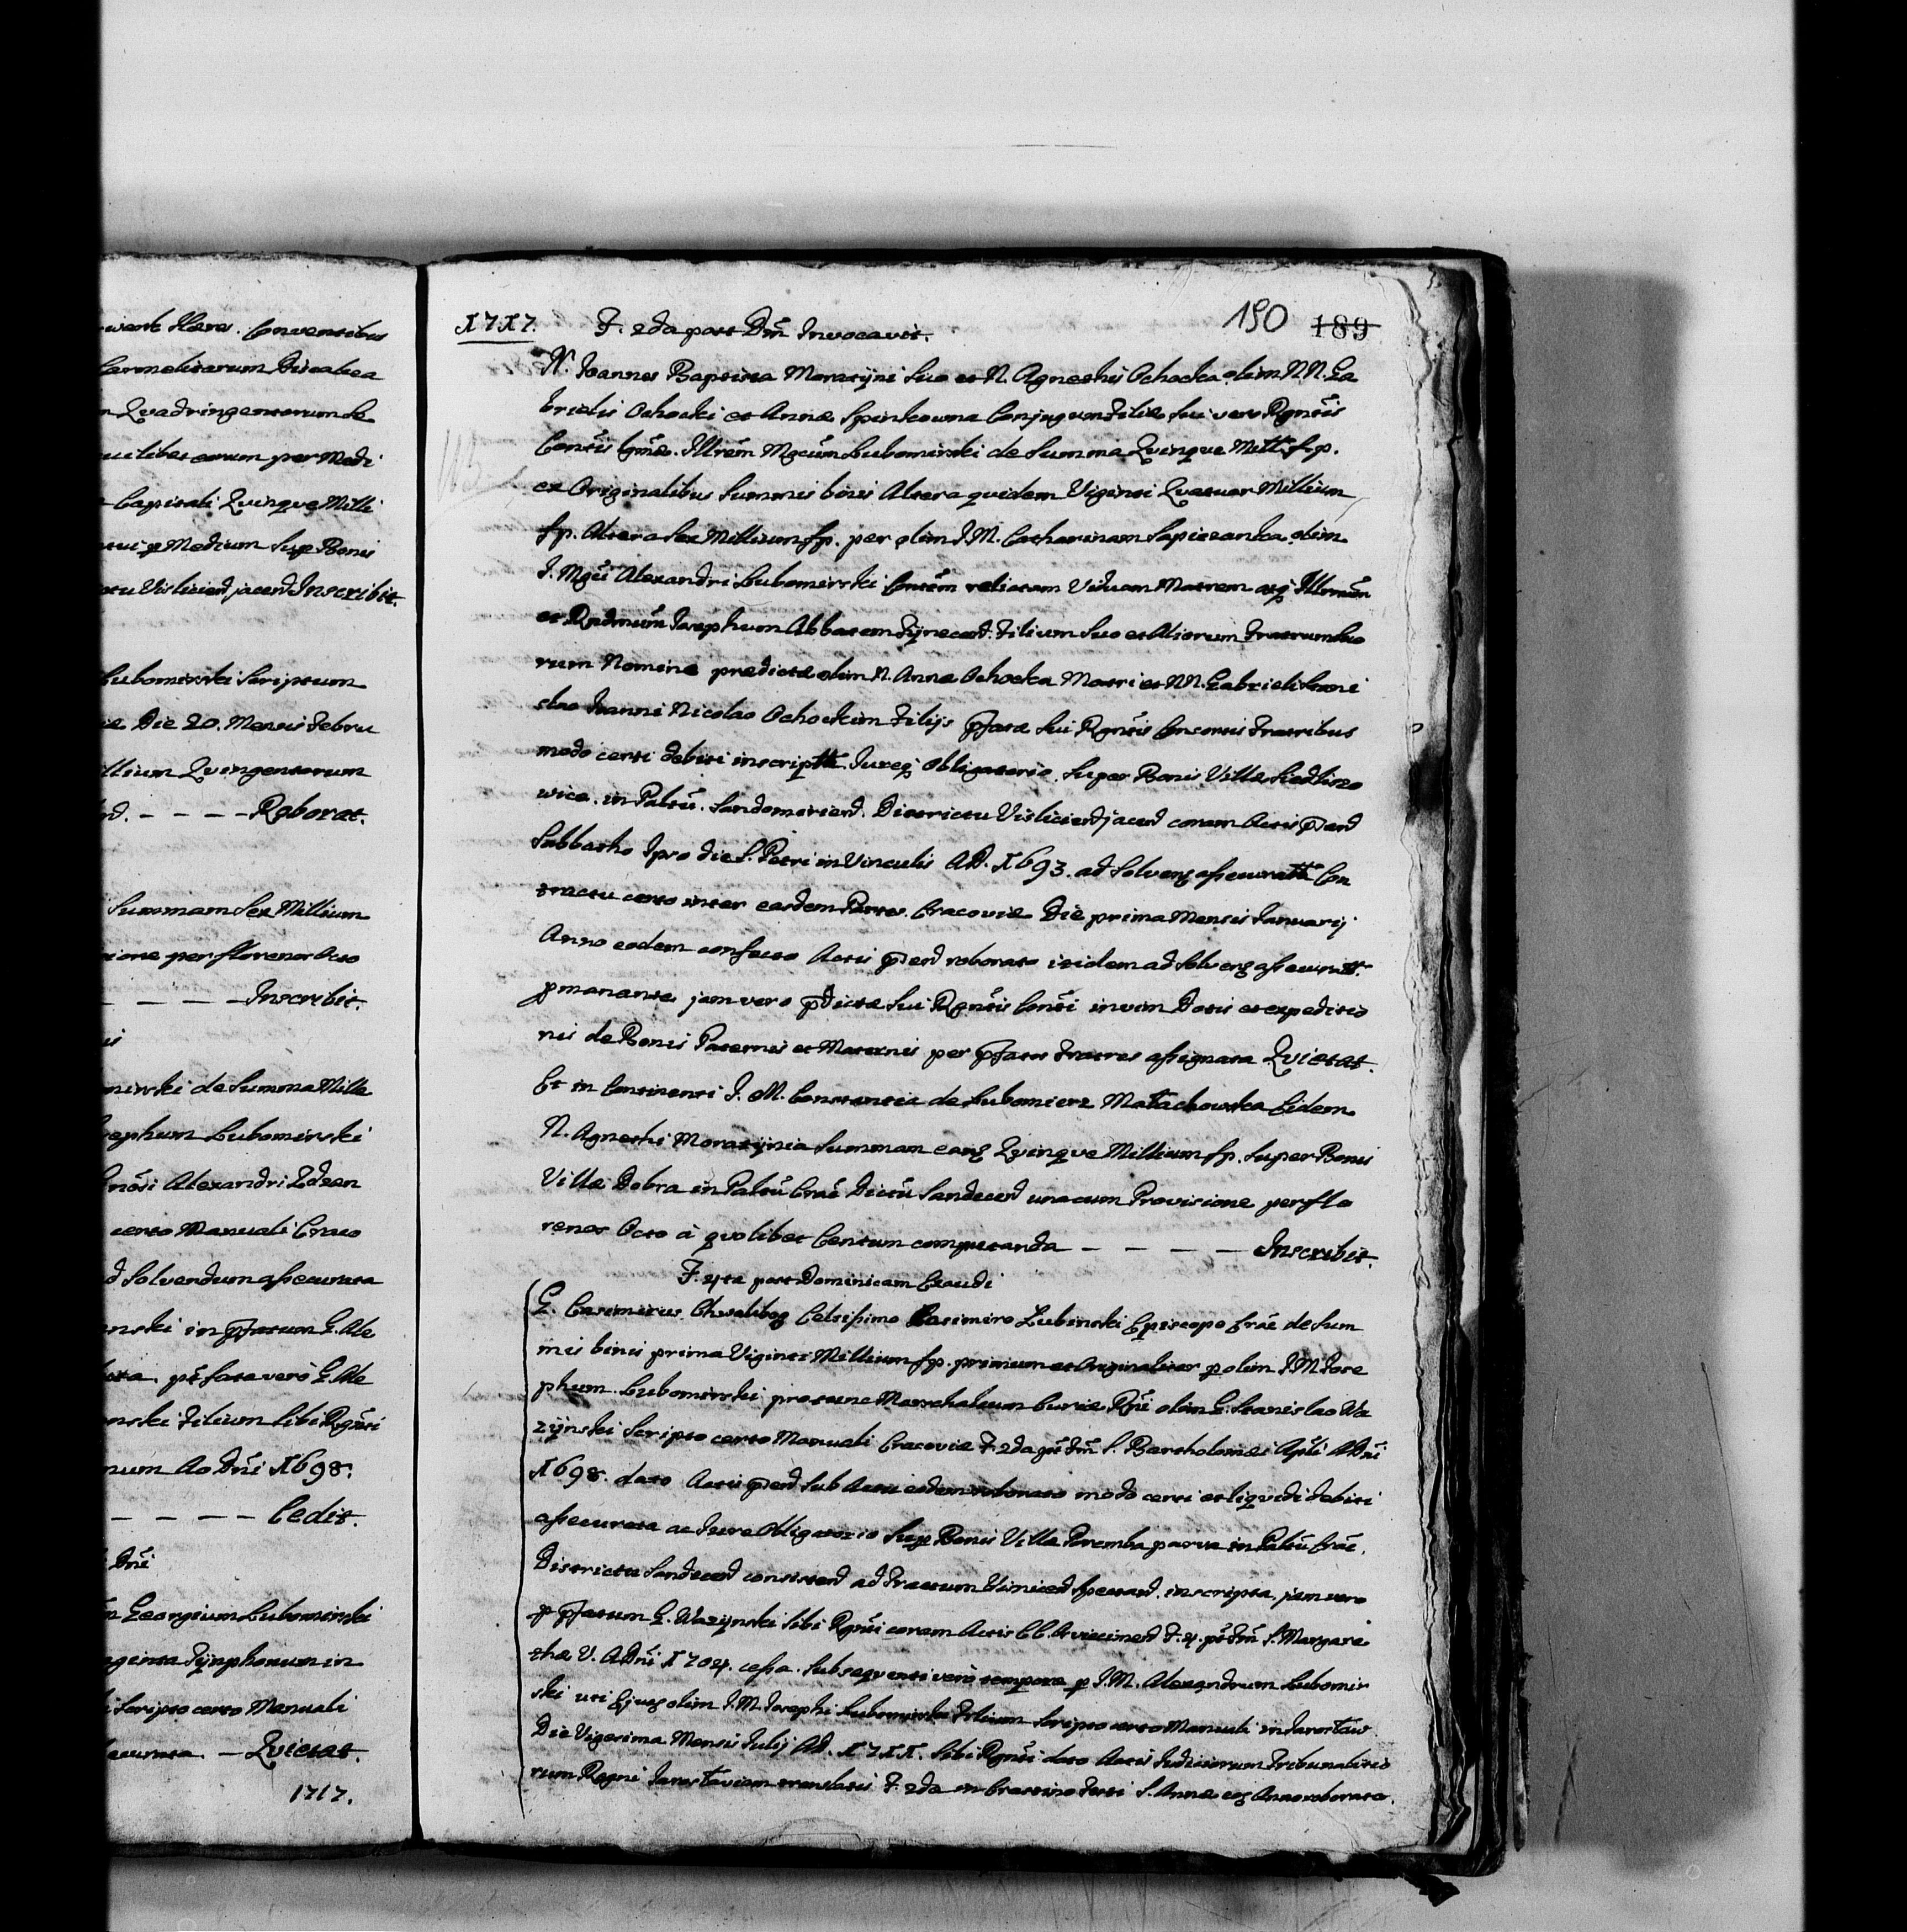 went Haere. Conventibus
Carmelitarum Discalcea
n Quadringentorum Se
uilibet earum per Medi
Capitali Quinque Milli
Medium Sup Bonis
ctu Vislicien jacen Inscribit.
Lubomirski Scriptum
Die 20. Mensis Febru
llium Quingentorum
- - - - Roborat.
Summam Sex Millium
ione per florenos Octo
- - - - Inscribit.
mirski de Summa Mille
sephum Lubomirski
Alexandri
certo Manuali Craco
d Solvendum assecurata
nski in pfatum G. Ale
pt fata verò G. Ale
nski Filium Sibi Rgnti
num Ao Dni 1698.
- - - - Cedit.
Dni
Georgium Lubomirski
aginta Tynphonum in
Scripto certo Manuali
ecurata. - Quietat.
1717.
1717. F. 2da post Dnm Invocavit. 190 189
N. Joannes Baptista Moratyni Suo et N. Agnethis Ochocka olim N.N. Ga
brielis Ochocki et Annæ Spinkowna Conjugum Filiæ Sui vero Rgntis
Contis Illrem Mgcum Lubomirski de Summa Quinque Mill. fp.
ex Originalibus Summis binis Altera quidem Viginti Quatuor Millium
fp. Altera Sex Millium fp. per olim I.M. Catharinam Sapiezanka olim
I. Mgci Alexandri Lubomirski Contem relictam Viduam Matrem atq Illrmum
et Rndmum Josephum Abbatem Tynecen. Filium Suo et Aliorum Fratrum Suo
rum Nomine predictæ olim N. Annæ Ochocka Matri et NN. Gabrieli Stani
slao Joanni Nicolao Ochockim Filijs pfatæ Sui Rgntis Consortis Fratribus
modo certi debiti inscriptæ Jureq obligatorio. Super Bonis Villæ Siedliszo
wice. in Paltu. Sandomirien. Districtu Vislicien jacen coram Actis pen
Sabbatho Ipso die S. Petri in Vinculis AD. 1693. ad Solveng assecurattæ Con
tractu certo inter easdem Partes. Cracoviæ Die prima Mensis Januarij
Anno eodem confecto Actis pen roborato itidem ad Solveng assecuratt.
pmanante jam vero pdictæ Sui Rgntis Conti in vim Dotis et expeditio
nis de Bonis Paternis et Maternis per pfatos Fratres assignata Quietat.
Et in Continenti I. M. Constantia de Lubomierz Małachowska Eidem
N. Agnethi Moratynia Summam eang Quinque Millium fp. Super Bonis
Villæ Dobra in Paltu Crac Dictu Sandecen una cum Provisione per flo
renos Octo à quolibet Centum computanda - - - - Inscribit.
F. 4ta post Dominicam Exaudi
G. Casimirus Chwalibog Celsissimo Casimiro Łubinski Episcopo Crac de Sum
mis binis prima Viginti Millium fp. primum et Originaliter p olim I.M. Jose
phum. Lubomirski protunc Marschalcum Curiæ Rni olim G. Stanislao Wa
zynski Scripto certo Manuali Cracoviæ F. 2da pt Fm S. Bartholomæi Apli ADni
1698. dato Actis pen Sub Actu eodem roborato modo certi et liquidi debiti
assecurata ac Jure Obligatorio Sup Bonis Villæ Poremba parva in Paltu Crac.
Districtu Sandecen consisten ad Tractum Timicen Spectan. inscripta. jam vero
p pfatum G. Wazynski Sibi Rgnti coram Actis CC. Osviecimen F. 4. pt Fm S. Margare
thæ V. ADni 1704. cessa. Subsequenti verò tempore p I.M. Alexandrum Lubomir
ski uti Ejusq olim I.M. Josephi Lubomirski Filium Scripto certo Manuali in Jarosław
Die Vigesima Mensis Julij AD. 1711. Sibi Rgnti dato Actis Judiciorum Tribunalitio
rum Regni Jaroslaviam translatis F. 2da in Crastino Festi S. Annæ eoq Anno roborato.